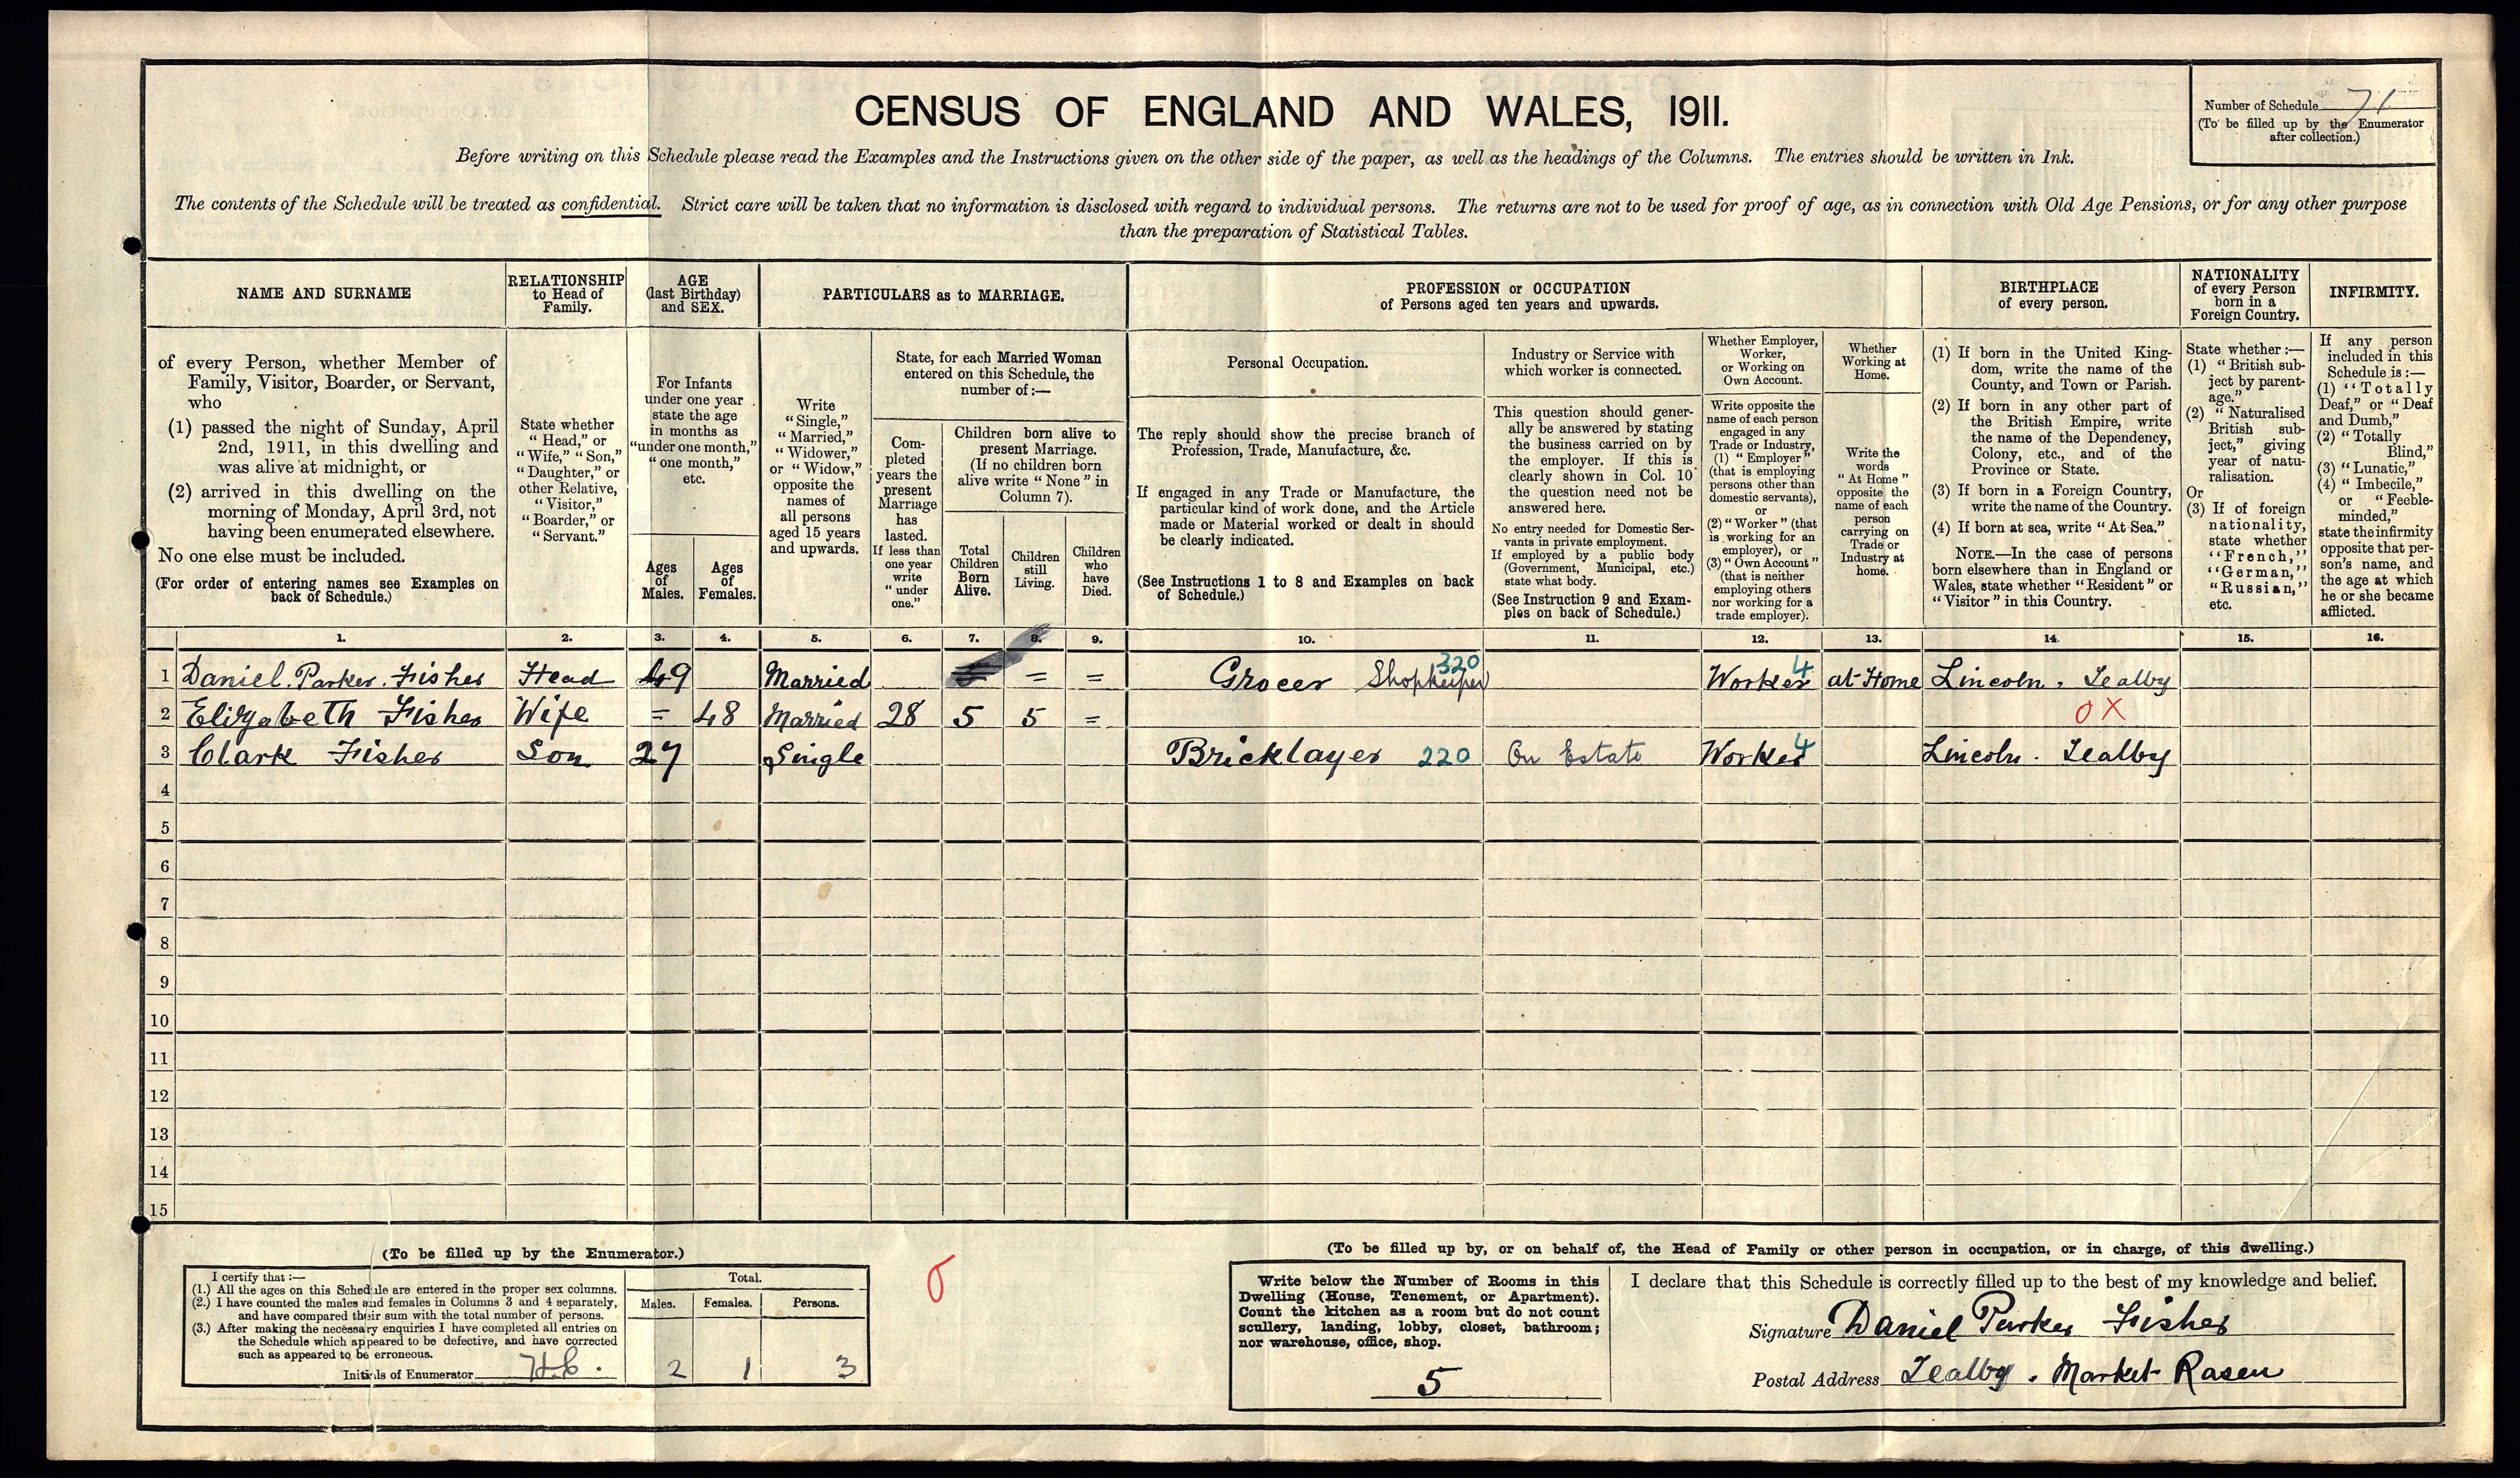 CENSUS OF ENGLAND AND WALES, 1911.
Number of Schedule 71
(To be filled up by the Enumerator
after collection.)
Before writing on this Schedule please read the Examples and the Instructions given on the other side of the paper, as well as the headings of the Columns. The entries should be written in Ink.
The contents of the Schedule will be treated as confidential. Strict care will be taken that no information is disclosed with regard to individual persons. The returns are not to be used for proof of age, as in connection with Old Age Pensions, or for any other purpose
than the preparation of Statistical Tables.
NAME AND SURNAME
of every Person, whether Member of
Family, Visitor, Boarder, or Servant,
who
(1) passed the night of Sunday, April
2nd, 1911, in this dwelling and
was alive at midnight, or
(2) arrived in this dwelling on the
morning of Monday, April 3rd, not
having been enumerated elsewhere.
No one else must be included.
(For order of entering names see Examples on
back of Schedule.)
RELATIONSHIP
to Head of
Family.
State whether
"Head," or
"Wife," "Son,"
"Daughter," or
other Relative,
"Visitor,"
"Boarder," or
"Servant."
AGE
(last Birthday)
and SEX.
For Infants
under one year
state the age
in months as
"under one month,"
"one month,"
etc.
Ages
of
Males.
Ages
of
Females.
PARTICULARS as to MARRIAGE.
Write
"Single,"
"Married,"
"Widower,"
or "Widow,"
opposite the
names of
all persons
aged 15 years
and upwards.
State, for each Married Woman
entered on this Schedule, the
number of:—
Com-
pleted
years the
present
Marriage
has
lasted.
If less than
one year
write
"under
one."
Children born alive to
present Marriage.
(If no children born
alive write "None" in
Column 7).
Total
Children
Born
Alive.
Children
still
Living.
Children
who
have
Died.
PROFESSION or OCCUPATION
of Persons aged ten years and upwards.
Personal Occupation.
The reply should show the precise branch of
Profession, Trade, Manufacture, &c.
If engaged in any Trade or Manufacture, the
particular kind of work done, and the Article
made or Material worked or dealt in should
be clearly indicated.
(See Instructions 1 to 8 and Examples on back
of Schedule.)
Industry or Service with
which worker is connected.
This question should gener-
ally be answered by stating
the business carried on by
the employer. If this is
clearly shown in Col. 10
the question need not be
answered here.
No entry needed for Domestic Ser-
vants in private employment.
If employed by a public body
(Government, Municipal, etc.)
state what body.
(See Instruction 9 and Exam-
ples on back of Schedule.)
Whether Employer,
Worker,
or Working on
Own Account.
Write opposite the
name of each person
engaged in any
Trade or Industry,
(1) "Employer"
(that is employing
persons other than
domestic servants),
or
(2) "Worker" (that
is working for an
employer), or
(3) "Own Account"
(that is neither
employing others
nor working for a
trade employer).
Whether
Working at
Home.
Write the
words
"At Home"
opposite the
name of each
person
carrying on
Trade or
Industry at
home.
BIRTHPLACE
of every person.
(1) If born in the United King-
dom, write the name of the
County, and Town or Parish.
(2) If born in any other part of
the British Empire, write
the name of the Dependency,
Colony, etc., and of the
Province or State.
(3) If born in a Foreign Country,
write the name of the Country.
(4) If born at sea, write "At Sea."
NOTE.—In the case of persons
born elsewhere than in England or
Wales, state whether "Resident" or
"Visitor" in this Country.
NATIONALITY
of every Person
born in a
Foreign Country.
State whether:—
(1) "British sub-
ject by parent-
age."
(2) "Naturalised
British sub-
ject," giving
year of natu-
ralisation.
Or
(3) If of foreign
nationality,
state whether
"French,"
"German,"
"Russian,"
etc.
INFIRMITY.
If any person
included in this
Schedule is:—
(1) "Totally
Deaf," or "Deaf
and Dumb,"
(2) "Totally
Blind,"
(3) "Lunatic,"
(4) "Imbecile,"
or "Feeble-
minded,"
state the infirmity
opposite that per-
son's name, and
the age at which
he or she became
afflicted.
1. 2. 3. 4. 5. 6. 7. 8. 9. 10. 11. 12. 13. 14. 15. 16.
1 Daniel. Parker. Fisher Head 49 Married = = Grocer Shopkeeper 320 Worker 4 at Home Lincoln. Tealby
2 Elizabeth Fisher Wife = 48 Married 28 5 5 = OX
3 Clark Fisher Son 27 Single Bricklayer 220 On Estate Worker 4 Lincoln. Tealby
4
5
6
7
8
9
10
11
12
13
14
15
(To be filled up by the Enumerator.)
I certify that:—
(1.) All the ages on this Schedule are entered in the proper sex columns.
(2.) I have counted the males and females in Columns 3 and 4 separately,
and have compared their sum with the total number of persons.
(3.) After making the necessary enquiries I have completed all entries on
the Schedule which appeared to be defective, and have corrected
such as appeared to be erroneous.
Initials of Enumerator
Total.
Males. Females. Persons.
2 1 3
(To be filled up by, or on behalf of, the Head of Family or other person in occupation, or in charge, of this dwelling.)
Write below the Number of Rooms in this
Dwelling (House, Tenement, or Apartment).
Count the kitchen as a room but do not count
scullery, landing, lobby, closet, bathroom;
nor warehouse, office, shop.
5
I declare that this Schedule is correctly filled up to the best of my knowledge and belief.
Signature Daniel Parker Fisher
Postal Address Tealby. Market Rasen